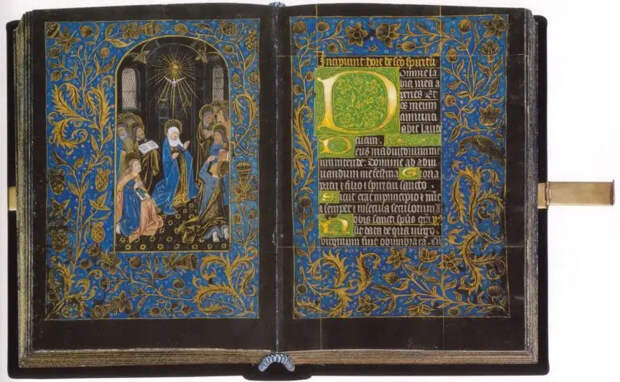 Incipiunt hore de sco spiritu
Domine la
bia mea a
peries Et
os meum
annunci
abit laude
tuam.
Deus in adiutorium meum
intende. Domine ad adiu
uandum me festina. Gloria
patri et filio et spiritui sancto
Sicut erat in principio et nūc
et semper et in secula seculorum a
Nobis sancti spūs gratia
sit data de qua uirgo
uirginum fuit obumbrata.